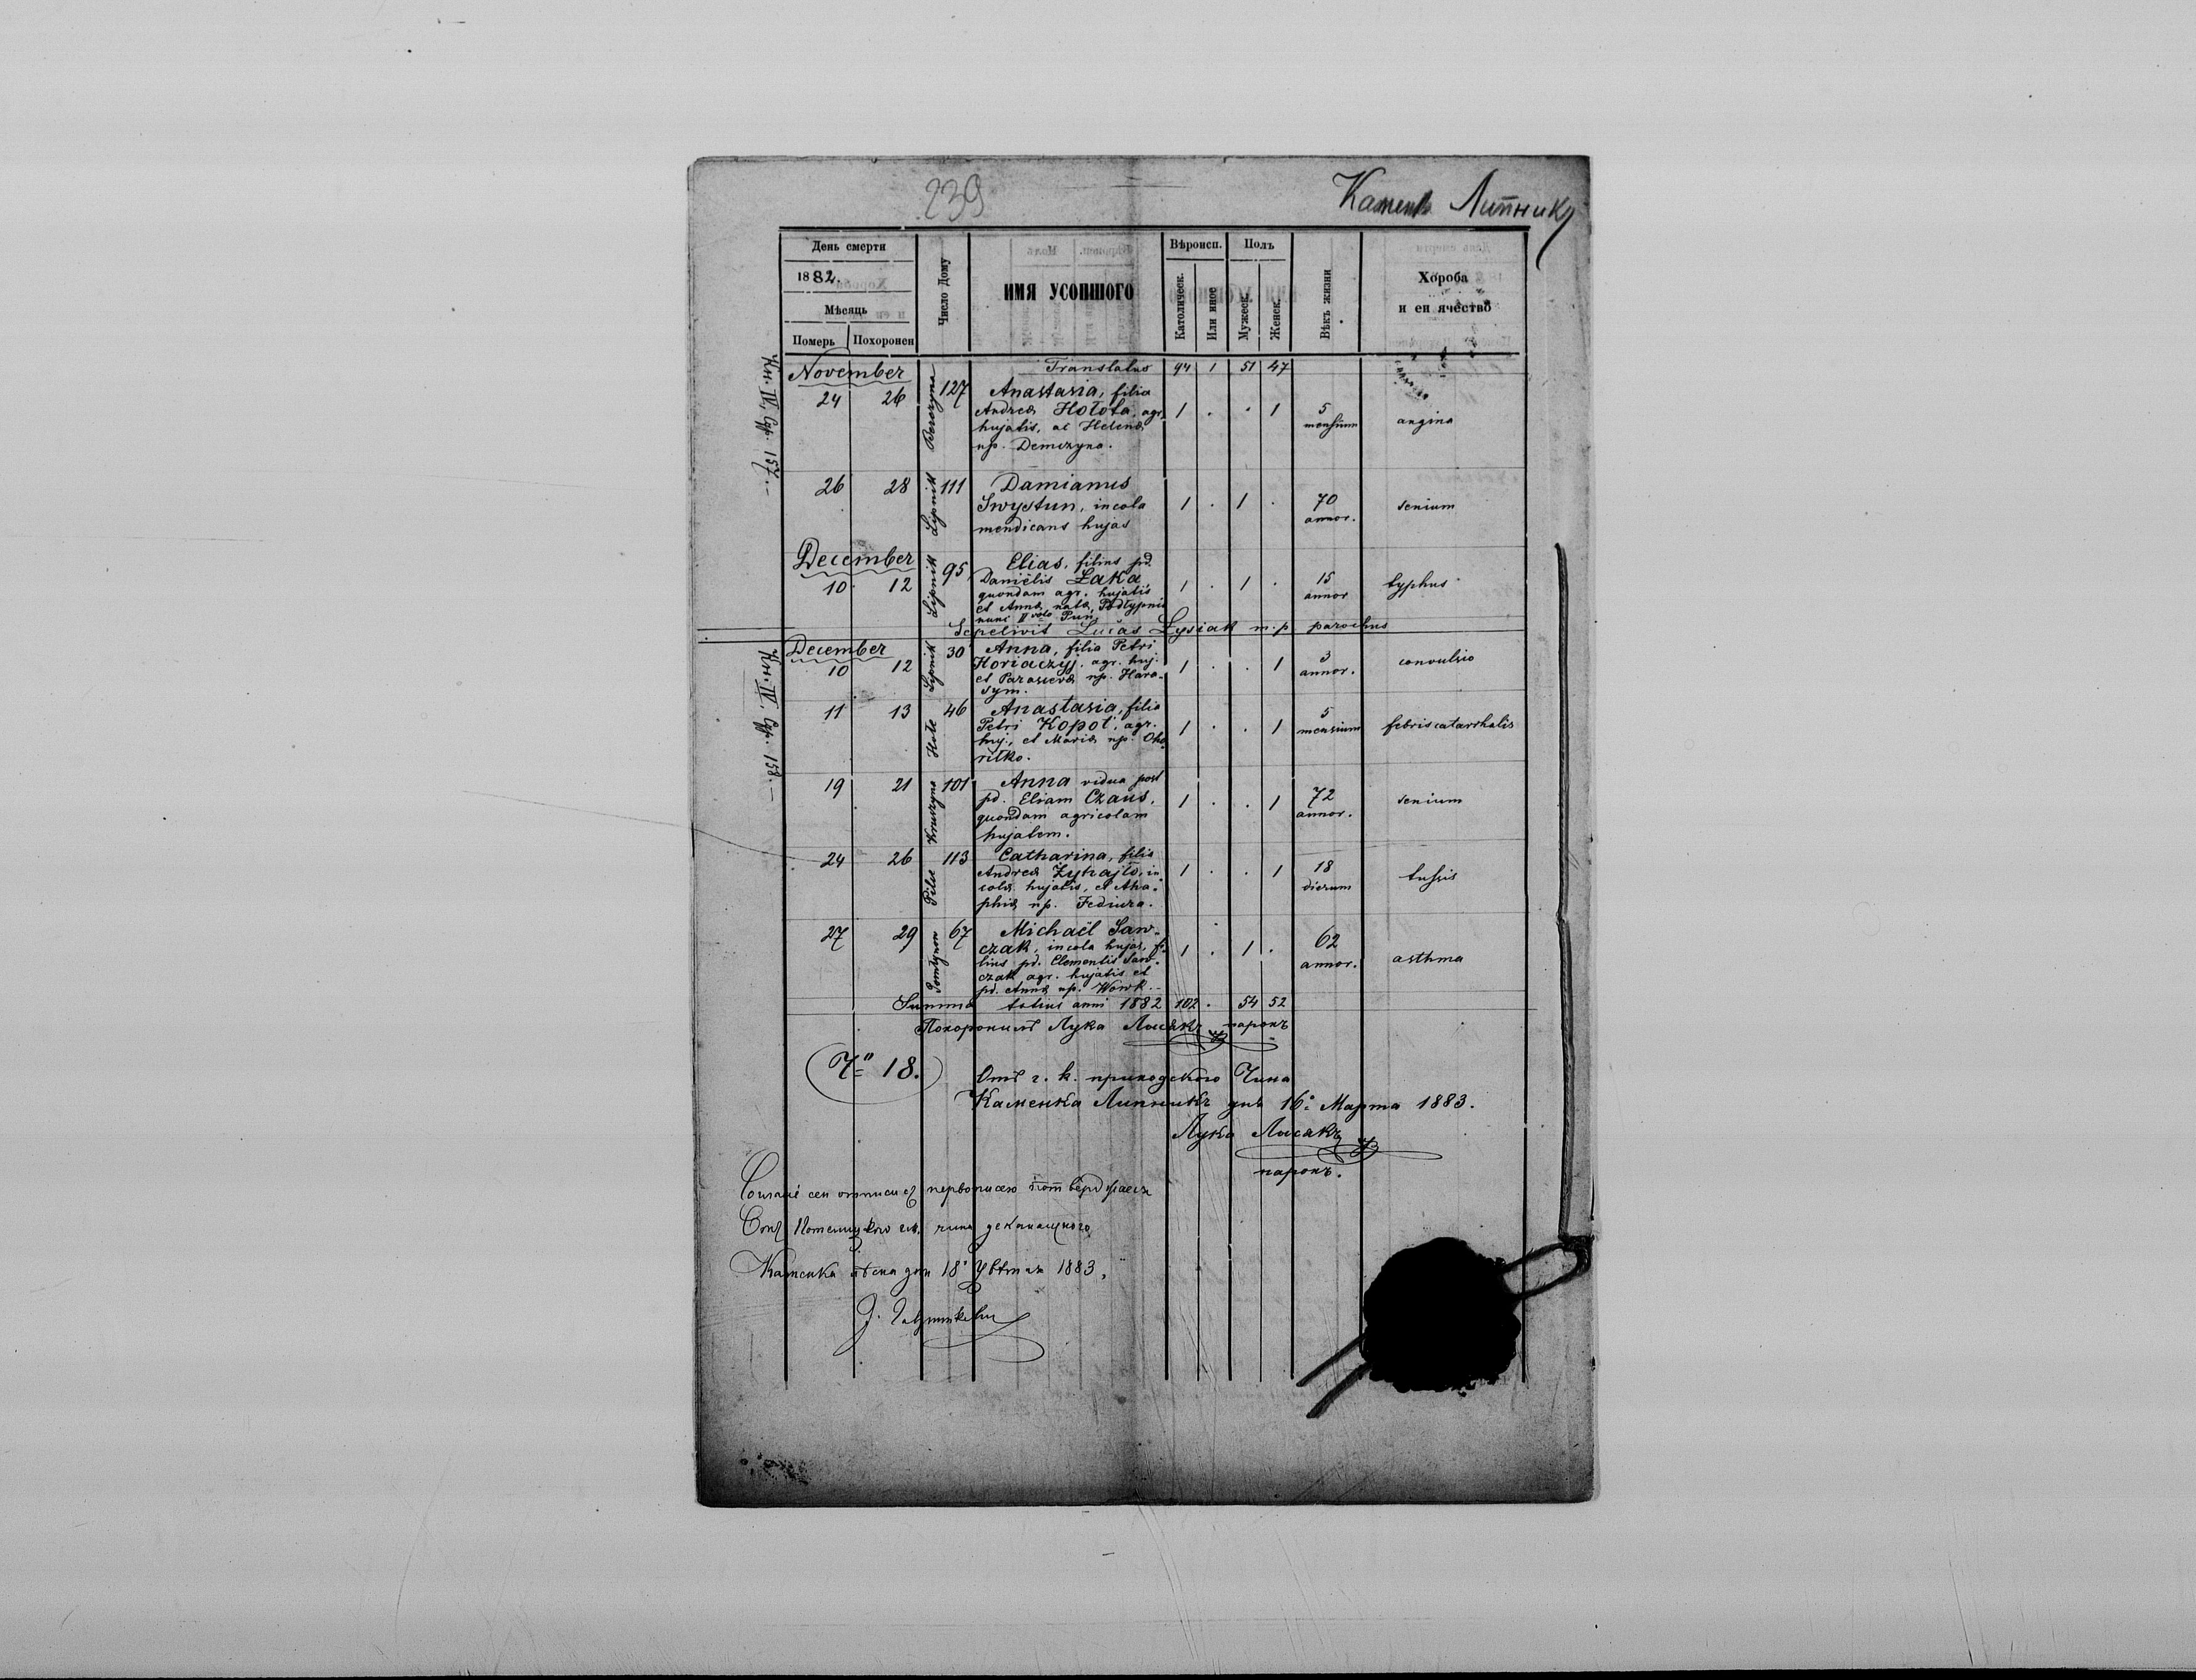 239
Каменка Липникъ
День смерти
1882.
Мѣсяць
Померъ
Похоронен
Число Дому
ИМЯ УСОПШОГО
Вѣроисп.
Католическ.
Или иное
Полъ
Мужеск.
Женск.
Вѣкъ жизни
Хороба
и еи ячество
Кн. IV. Стр. 157.-
November Translatus 94 1 51 47
24 26 Berezyna 127 Anastasia, filia
Andreæ Hołota, agr.
hujatis, ac Helenæ
np. Demczyna.
1 . . 1 5 mensium angina
26 28 Lipnik 111 Damianus
Swystun, incola
mendicans hujas
1 . 1 . 70 annor. senium
December
10 12 Lipnik 95 Elias, filius pd.
Daniëlis Łaka,
quondam agr. hujatis
et Annæ, natæ, Podłypnis
nunc II voto Pun
1 . 1 . 15 annor typhus
Sepelivit Lucas Łysiak m.p. parochus
Кн. IV. Стр. 158.-
December
10 12 Lipnik 30 Anna, filia Petri
Horiaczyj, agr. huj.
et Parascevæ np. Hara-
sym.
1 . . 1 3 annor. convulsio
11 13 Hołe 46 Anastasia, filia
Petri Kopot, agr.
huj., et Mariæ np. Oho-
ritko.
1 . . 1 5 mensium febris catarrhalis
19 21 Kruczyna 101 Anna vidua post
pd. Eliam Czaus,
quondam agricolam
hujatem.
1 . . 1 72 annor. senium
24 26 Pilie 113 Catharina, filia
Andreæ Żyhajło, in-
colæ hujatis, et Aha-
phiæ np. Fediura.
1 . . 1 18 dierum tussis
27 29 67 Michaël Saw-
czak, incola hujas, fi-
lius pd. Clementis Saw-
czak agr. hujatis et
pd. Annæ np. Wowk.
1 . 1 . 62 annor. asthma
Summa totius anni 1882 102 . 54 52
Похоронилъ Лука Лысякъ парохъ
Ч. 18.
Отъ г. к. приходского Чина
Каменка Липникъ дня 16. Марта 1883.
Лука Лысякъ
парохъ.
сеи отписи съ первописею потверджаеся
Отъ чина деканального
Каменка лѣсна дня 18 1883.